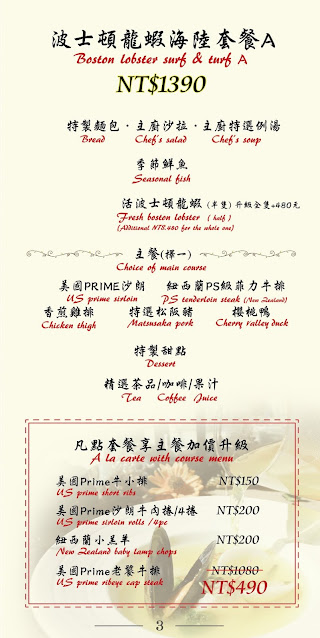 波士頓龍蝦海陸套餐A
Boston lobster surf & turf A
NT$1390
特製麵包·主廚沙拉·主廚特選例湯
Bread Chef's salad Chef's soup
季節鮮魚
Seasonal fish
活波士頓龍蝦 (半隻) 升級全隻+480元
Fresh boston lobster ( half )
(Additional NT$.480 for the whole one)
主餐(擇一)
Choice of main course
美國PRIME沙朗 紐西蘭PS級菲力牛排
US prime sirloin PS tenderloin steak (New Zealand)
香煎雞排 特選松阪豬 櫻桃鴨
Chicken thigh Matsusaka pork Cherry valley duck
特製甜點
Dessert
精選茶品/咖啡/果汁
Tea Coffee Juice
凡點套餐享主餐加價升級
A la carte with course menu
美國Prime牛小排 NT$150
US prime short ribs
美國Prime沙朗牛肉捲/4捲 NT$200
US prime sirloin rolls /4pc
紐西蘭小羔羊 NT$200
New Zealand baby lamp chops
美國Prime老饕牛排 NT$1080
US prime ribeye cap steak NT$490
3